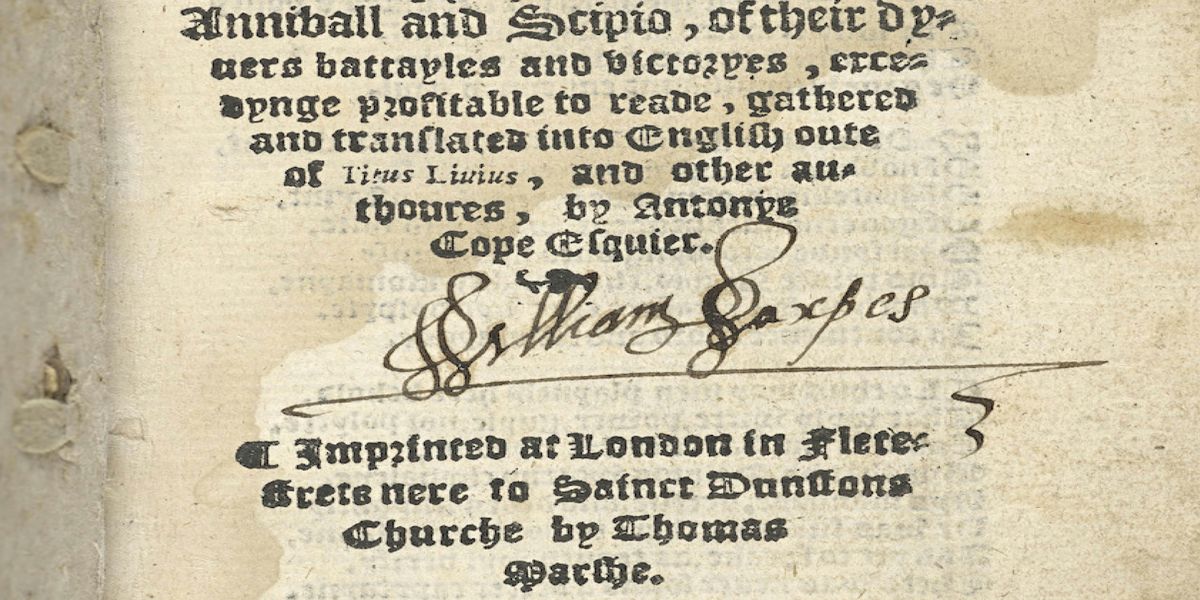 Anniball and Scipio, of their dy⸗
uers battayles and victoryes, exce⸗
dynge profitable to reade, gathered
and translated into English oute
of Titus Liuius, and other au⸗
thoures, by Antonye
Cope Esquier.
William
¶ Imprinted at London in Flete⸗
strete nere to Sainct Dunstons
Churche by Thomas
Marshe.